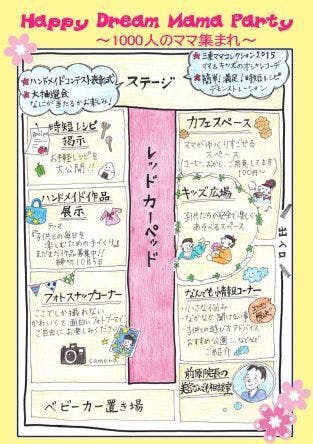 Happy Dream Mama Party
～1000人のママ集まれ～
★ハンドメイドコンテスト表彰式
★大抽選会
なにが当たるかお楽しみ!
ステージ
★三重ママコレクション2015
ママもキッズもオンザレコード
★簡単!満足!時短レシピ
デモンストレーション
時短レシピ
掲示
お手軽レシピを
大公開!!
Recipe
ハンドメイド作品
展示
テーマ
『子供との毎日を
楽しむための手づくり』
まだまだ作品募集中!!
締切10月5日
フォトスナップコーナー
ここでしか撮れない
かわいくて、面白いフォトブースで
ご自由にお楽しみください
camera
レッドカーペット
カフェスペース
ママがゆっくりすごせる
スペース
コーヒー、おかし、ご用意してます
100円〜
キッズ広場
子供たちが安全で楽しく
あそべるスペース
出入口
なんでも情報コーナー
・小さな悩み
・なかなか聞けない事
・子供との遊び方アドバイス
おすすめ公園…などなど
ご紹介
前原院長の
美容なんでも相談室
ベビーカー置き場